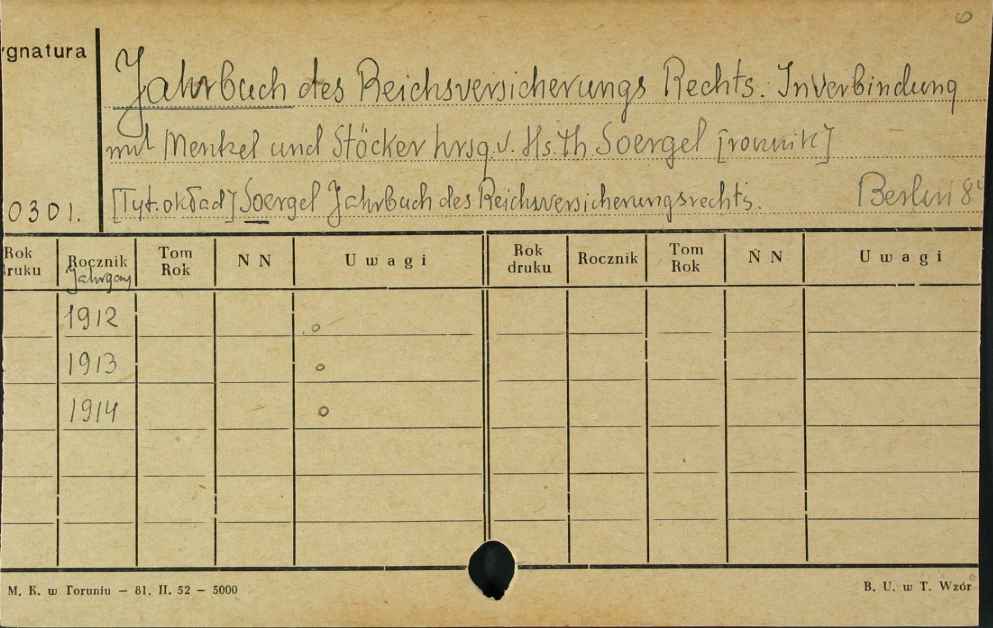 ygnatura
Jahrbuch des Reichsversicherungs Rechts. In Verbindung
mit Menkel und Stöcker hrsg. v. Hs. Th Soergel [rocznik]
0301. [Tyt. okład] Soergel Jahrbuch des Reichsversicherungsrechts. Berlin 8°
Rok druku Rocznik Jahrgang Tom Rok N N U w a g i Rok druku Rocznik Tom Rok N N U w a g i
1912 o
1913 o
1914 o
M. K. w Toruniu — 81. II. 52 — 5000 B. U. w T. Wzór